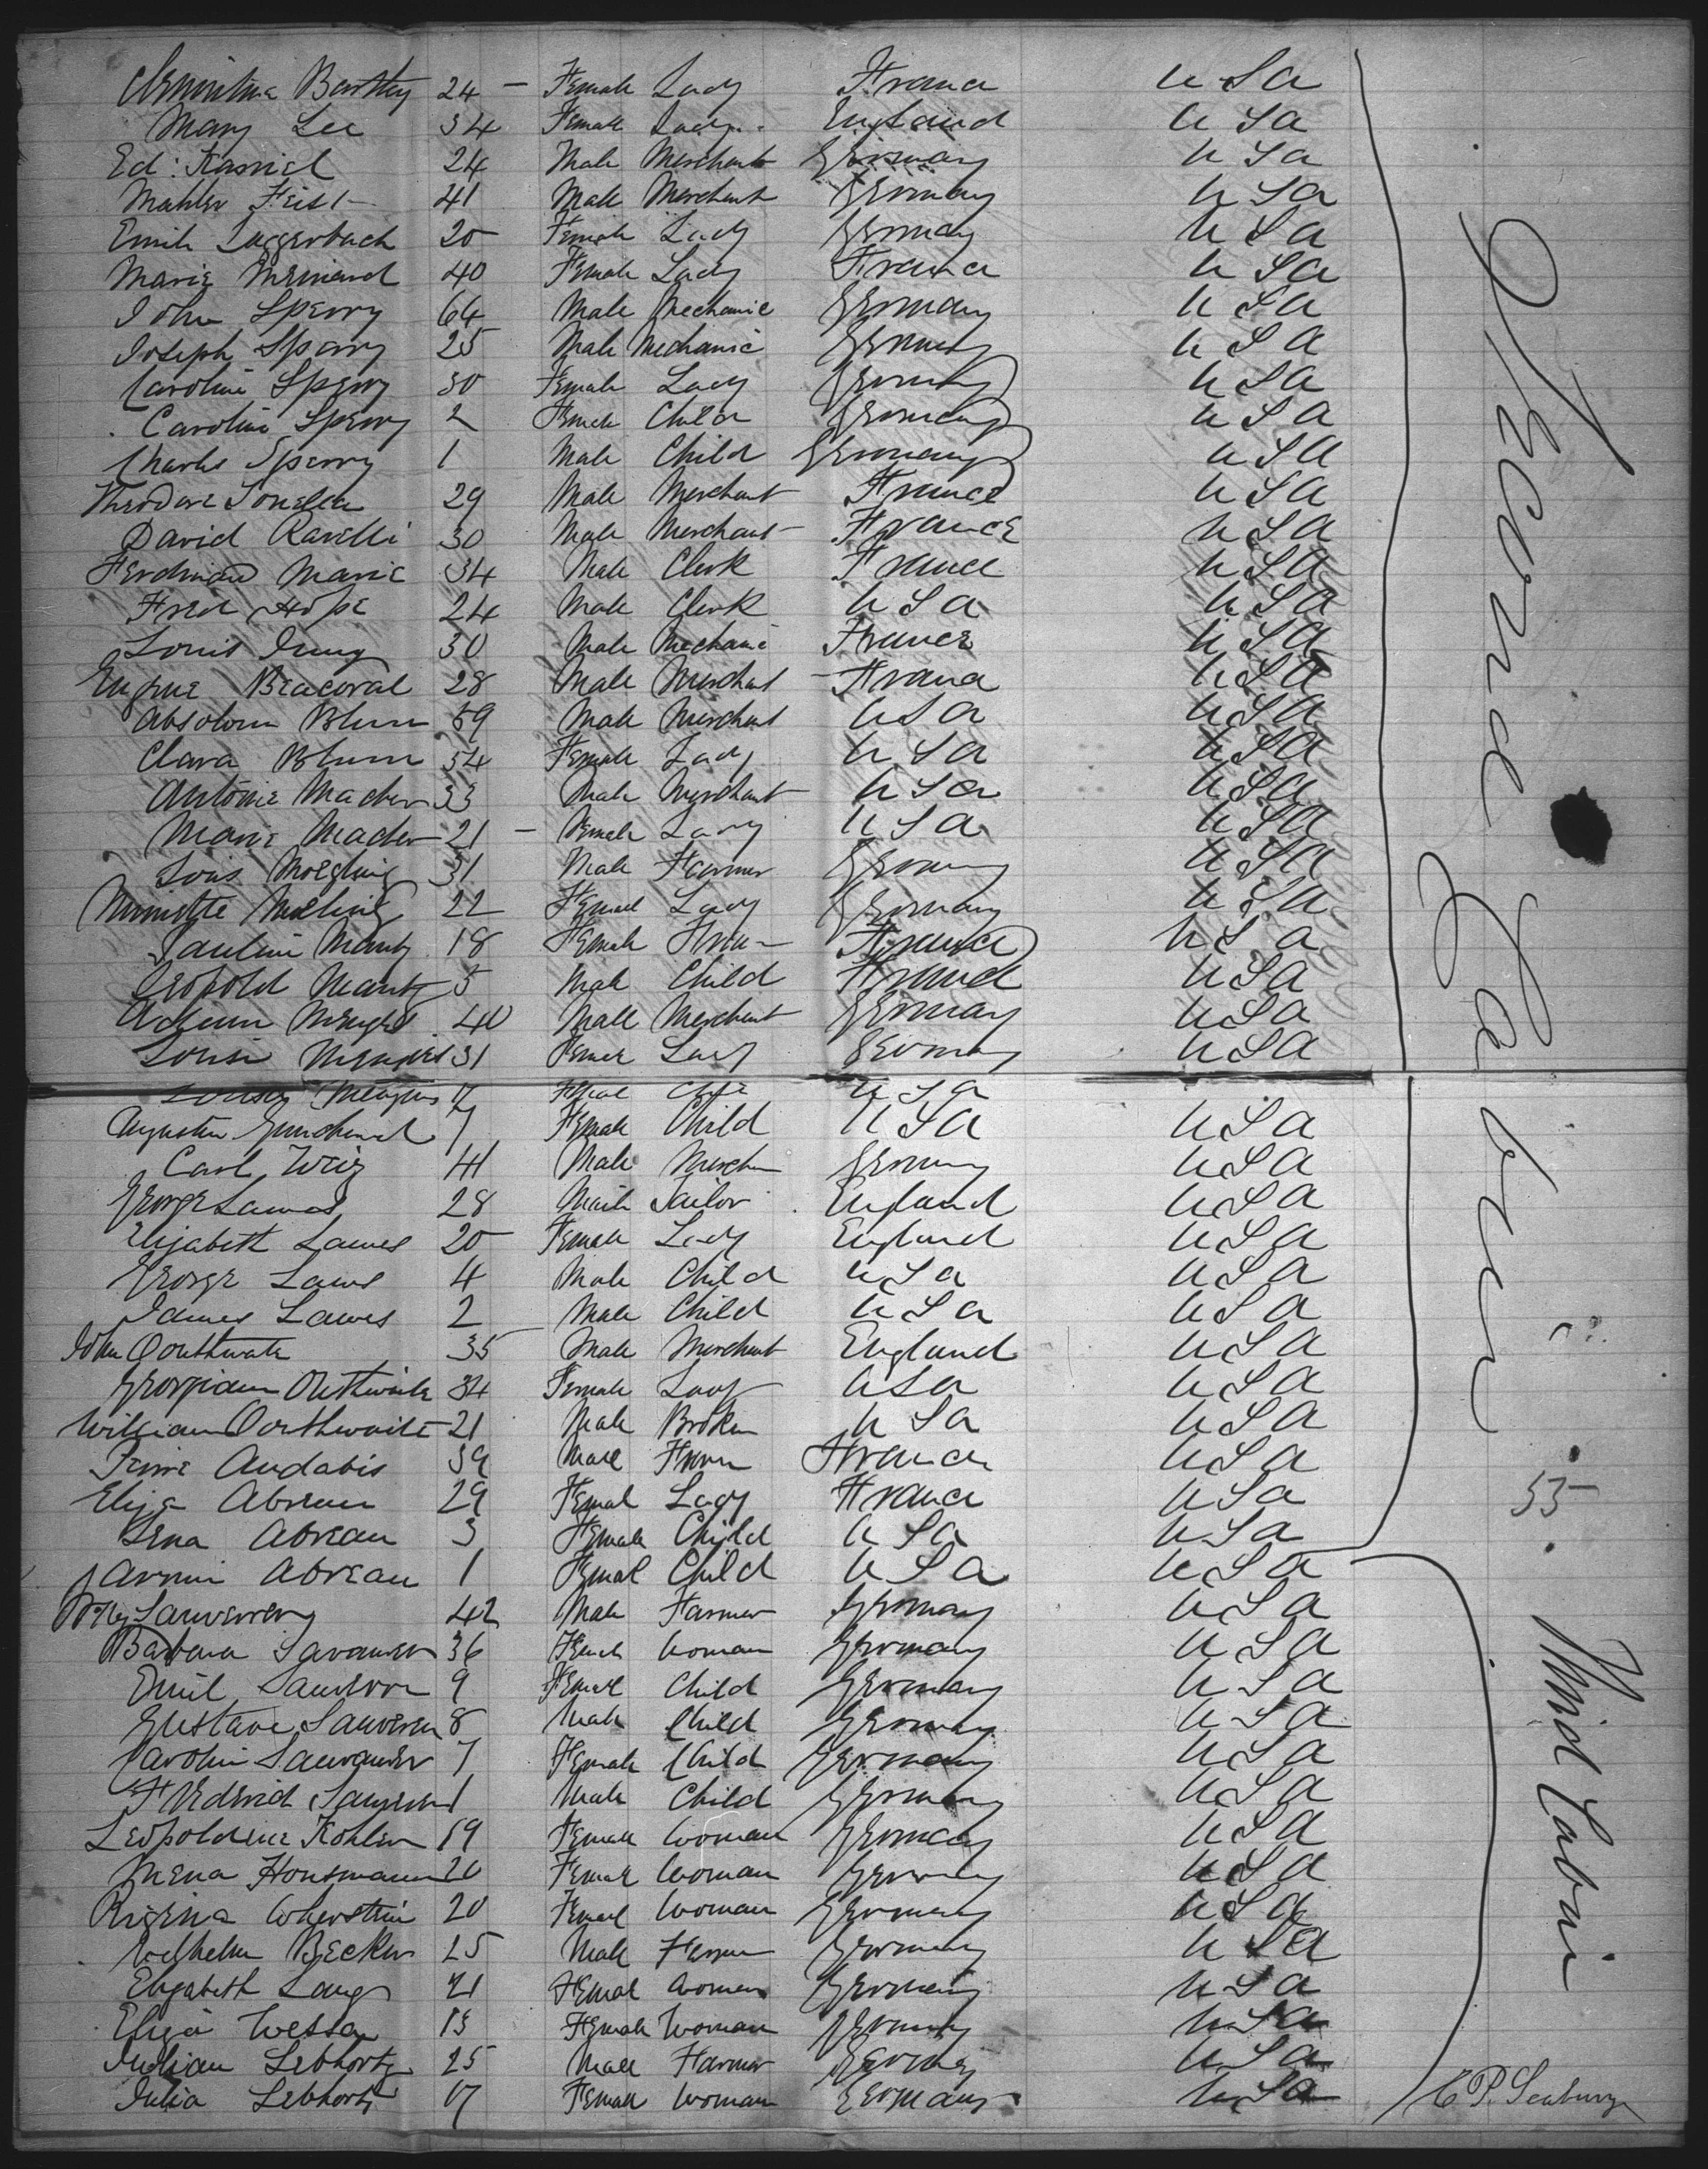 Clementine Barthy 24 - Female Lady France U S A
Mary Lee 34 Female Lady England U S A
Ed: Kassiel 24 Male Merchant Germany U S A
Mahler Feist 41 Male Merchant Germany U S A
Emile Luggerbach 20 Female Lady Germany U S A
Marie Meinard 40 Female Lady France U S A
John Sperry 64 Male Mechanic Germany U S A
Joseph Sperry 25 Male Mechanic Germany U S A
Caroline Sperry 30 Female Lady Germany U S A
Caroline Sperry 2 Female Child Germany U S A
Charles Sperry 1 Male Child Germany U S A
Theodore 29 Male Merchant France U S A
David Ravelli 30 Male Merchant France U S A
Ferdinand Marie 34 Male Clerk France U S A
Fred Hope 24 Male Clerk U S A U S A
Louis Jung 30 Male Mechanic France U S A
Eugene Beacoral 28 Male Merchant France U S A
Absolom Blum 59 Male Merchant U S A U S A
Clara Blum 34 Female Lady U S A U S A
Antonie Mader 33 Male Merchant U S A U S A
Marie Mader 21 - Female Lady U S A U S A
Louis Moegling 31 Male Farmer Germany U S A
22 Female Lady Germany U S A
Pauline Mantz 18 Female France U S A
Leopold Mantz 5 Male Child France U S A
40 Male Merchant Germany U S A
Louise Menges 31 Female Lady Germany U S A
Louisa Menges Female U S A
Augusta 7 Female Child U S A U S A
Carl Weiz 41 Male Merchn Germany U S A
George Lawes 28 Male Sailor England U S A
Elizabeth Lawes 20 Female Lady England U S A
George Laws 4 Male Child U S A U S A
James Lawes 2 Male Child U S A U S A
John Oouthwate 35 Male Merchant England U S A
Georgiann Outhwaite 34 Female Lady U S A U S A
William Oouthwaite 21 Male Broker U S A U S A
Audabis 39 Male France U S A
Eliza Abreau 29 Female Lady France U S A
Lena Abreau 3 Female Child U S A U S A
Abreau 1 Female Child U S A U S A
42 Male Farmer Germany U S A
Barbara 36 Female Woman Germany U S A
Emil 9 Female Child Germany U S A
Gustave 8 Male Child Germany U S A
Carolin 7 Female Child Germany U S A
Frederick 1 Male Child Germany U S A
Leopoldine Kohler 19 Female Woman Germany U S A
Mena Housmann 20 Female Woman Germany U S A
Regina 20 Female Woman Germany U S A
Wilhelm Becker 25 Male Germany U S A
Elizabeth Lang 21 Female Woman Germany U S A
Eliza Wessa Female Woman Germany U S A
Lebhortz 25 Male Farmer Germany U S A
Julia Lebhortz 17 Female Woman Germany U S A
Second Cabin
55
Third Cabin
C P. Seabury